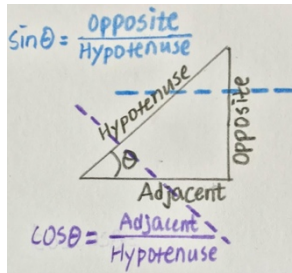 sinθ = Opposite
Hypotenuse
Hypotenuse
Opposite
θ
Adjacent
cosθ = Adjacent
Hypotenuse